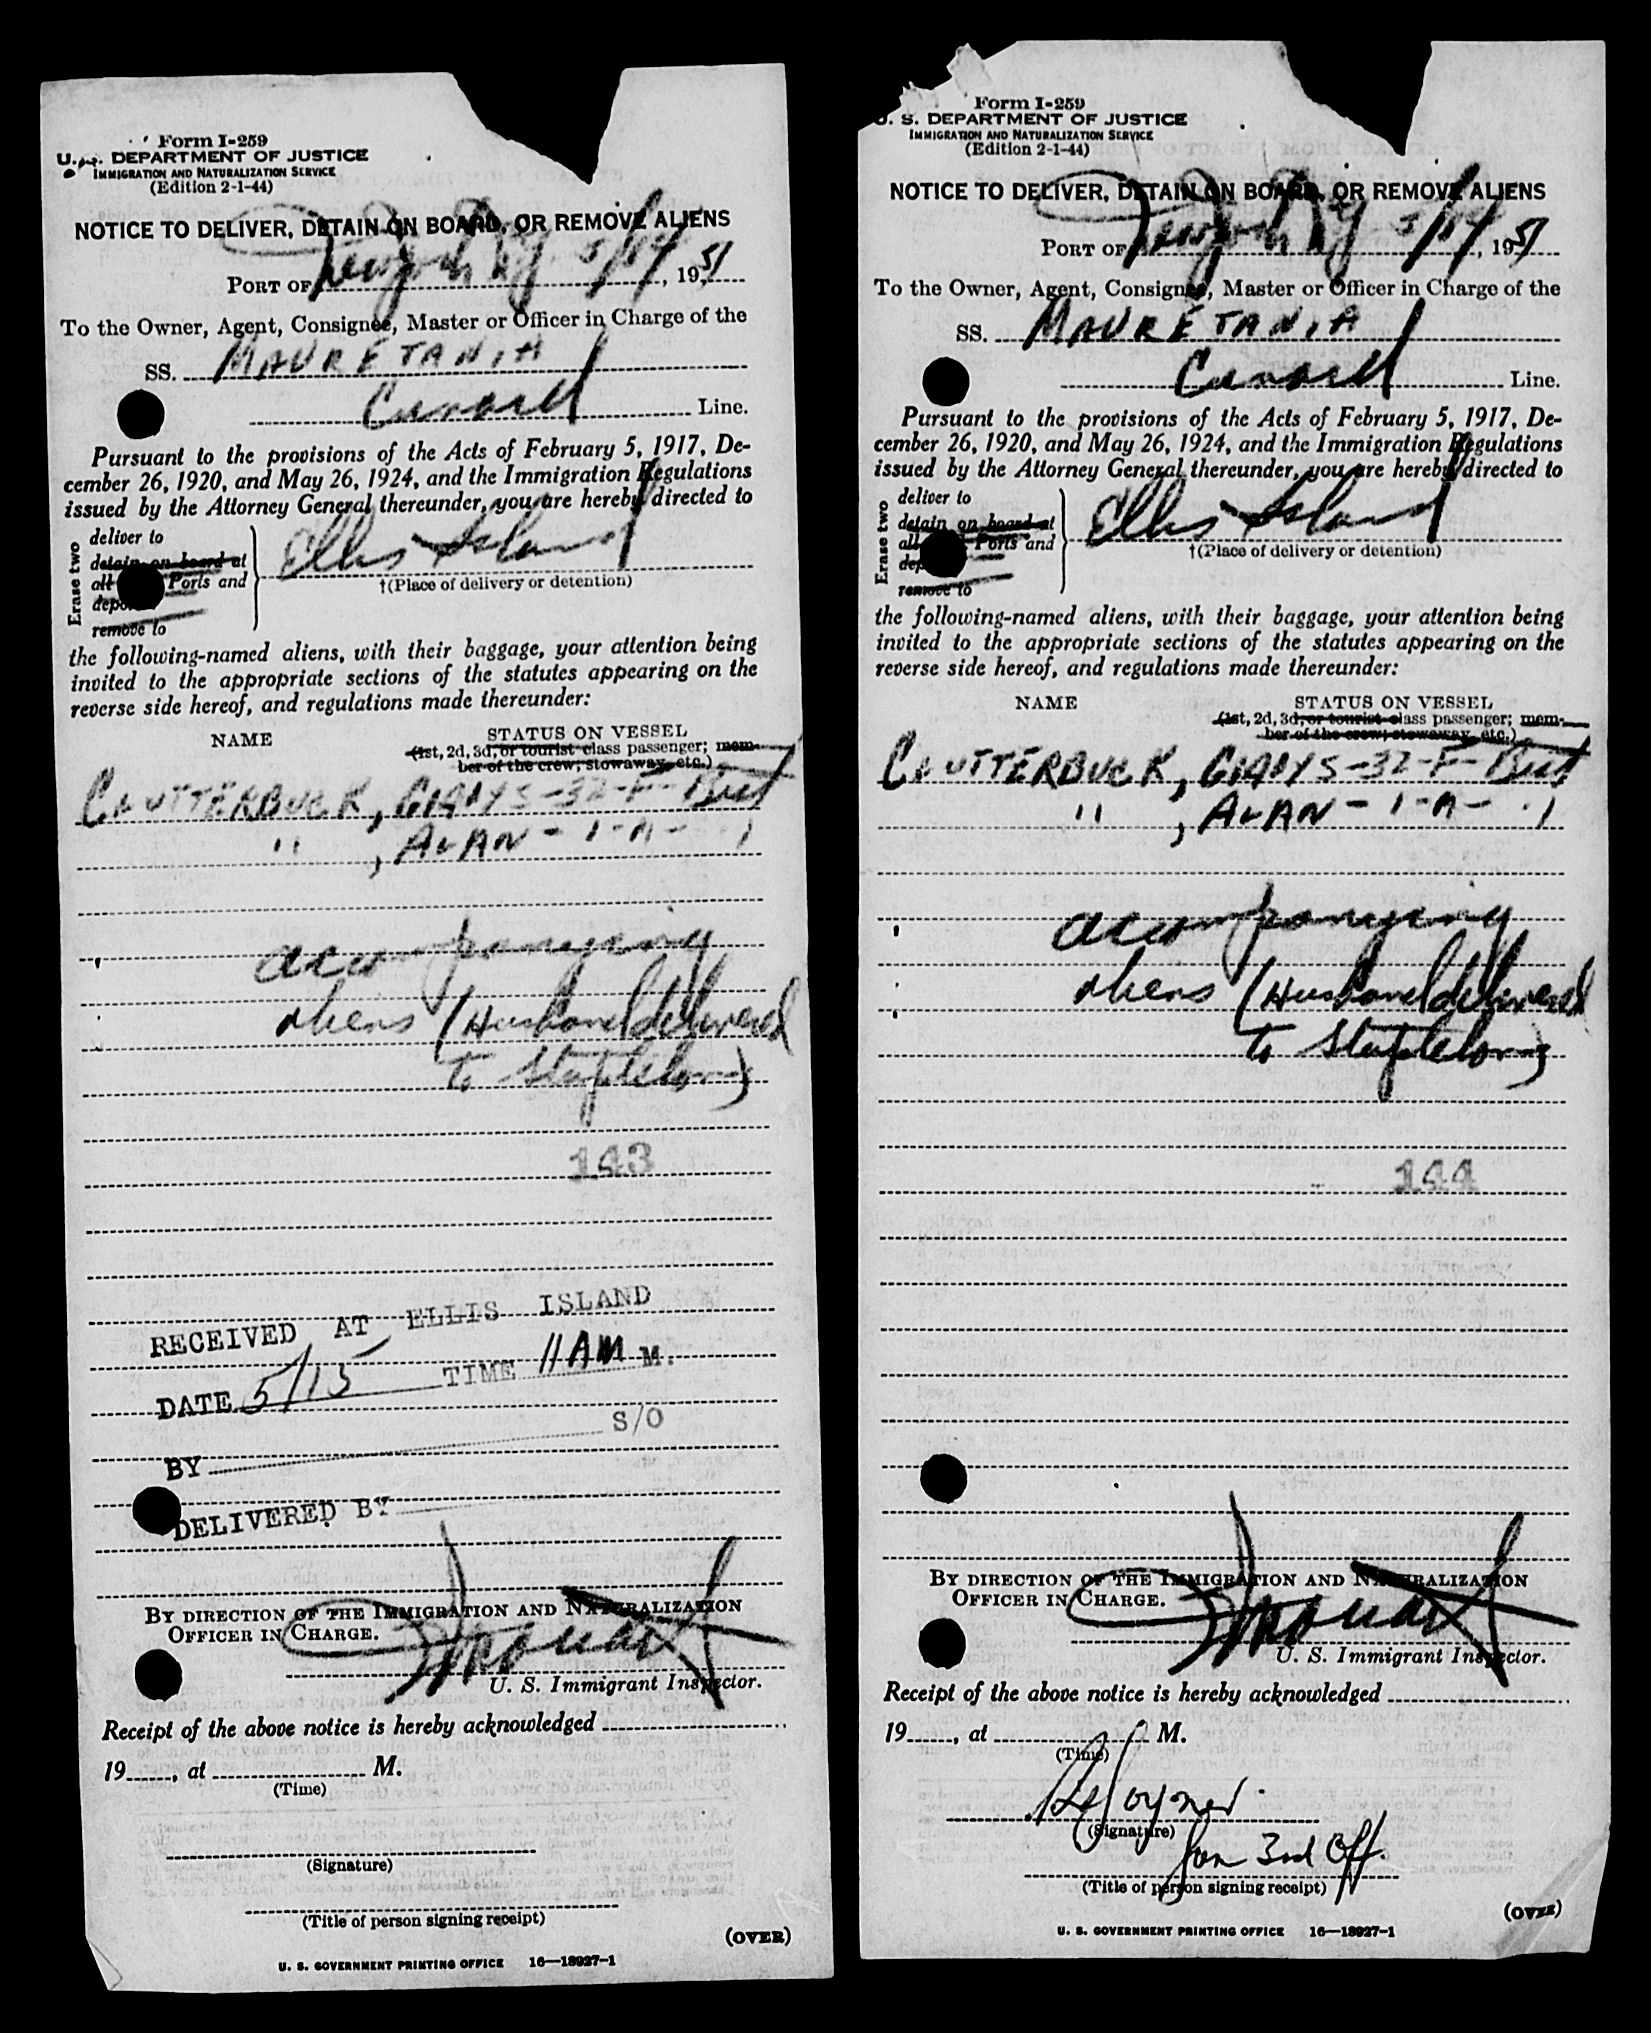 Form I-259
U. S. DEPARTMENT OF JUSTICE
IMMIGRATION AND NATURALIZATION SERVICE
(Edition 2-1-44)
NOTICE TO DELIVER, DETAIN ON BOARD, OR REMOVE ALIENS
PORT OF New York NY 5/14, 1951
To the Owner, Agent, Consignee, Master or Officer in Charge of the
SS. MAURETANIA
Cunard Line.
Pursuant to the provisions of the Acts of February 5, 1917, De-
cember 26, 1920, and May 26, 1924, and the Immigration Regulations
issued by the Attorney General thereunder, you are hereby directed to
Erase two
deliver to
detain on board at
all Ports and
remove to
Ellis Island
†(Place of delivery or detention)
the following-named aliens, with their baggage, your attention being
invited to the appropriate sections of the statutes appearing on the
reverse side hereof, and regulations made thereunder:
NAME STATUS ON VESSEL
(1st, 2d, 3d, or tourist class passenger; mem-
ber of the crew; stowaway, etc.)
CLUTTERBUCK, GLADYS - 32 - F - Brit
" , ALAN - 1 - M - "
accompanying
aliens (Husband delivered
to Stapleton)
143
RECEIVED AT ELLIS ISLAND
DATE 5/15 TIME 11 AM M.
BY S/O
DELIVERED BY
BY DIRECTION OF THE IMMIGRATION AND NATURALIZATION
OFFICER IN CHARGE.
U. S. Immigrant Inspector.
Receipt of the above notice is hereby acknowledged
19, at M.
(Time)
(Signature)
(Title of person signing receipt)
(OVER)
U. S. GOVERNMENT PRINTING OFFICE 16—18927-1
Form I-259
U. S. DEPARTMENT OF JUSTICE
IMMIGRATION AND NATURALIZATION SERVICE
(Edition 2-1-44)
NOTICE TO DELIVER, DETAIN ON BOARD, OR REMOVE ALIENS
PORT OF New York NY 5/14, 1951
To the Owner, Agent, Consignee, Master or Officer in Charge of the
SS. MAURETANIA
Cunard Line.
Pursuant to the provisions of the Acts of February 5, 1917, De-
cember 26, 1920, and May 26, 1924, and the Immigration Regulations
issued by the Attorney General thereunder, you are hereby directed to
Erase two
deliver to
detain on board at
all Ports and
remove to
Ellis Island
†(Place of delivery or detention)
the following-named aliens, with their baggage, your attention being
invited to the appropriate sections of the statutes appearing on the
reverse side hereof, and regulations made thereunder:
NAME STATUS ON VESSEL
(1st, 2d, 3d, or tourist class passenger; mem-
ber of the crew; stowaway, etc.)
CLUTTERBUCK, GLADYS - 32 - F - Brit
" , ALAN - 1 - M - "
accompanying
aliens (Husband delivered
to Stapleton)
144
BY DIRECTION OF THE IMMIGRATION AND NATURALIZATION
OFFICER IN CHARGE.
U. S. Immigrant Inspector.
Receipt of the above notice is hereby acknowledged
19, at M.
(Time)
(Signature)
Jun 3rd Off.
(Title of person signing receipt)
(OVER)
U. S. GOVERNMENT PRINTING OFFICE 16—18927-1